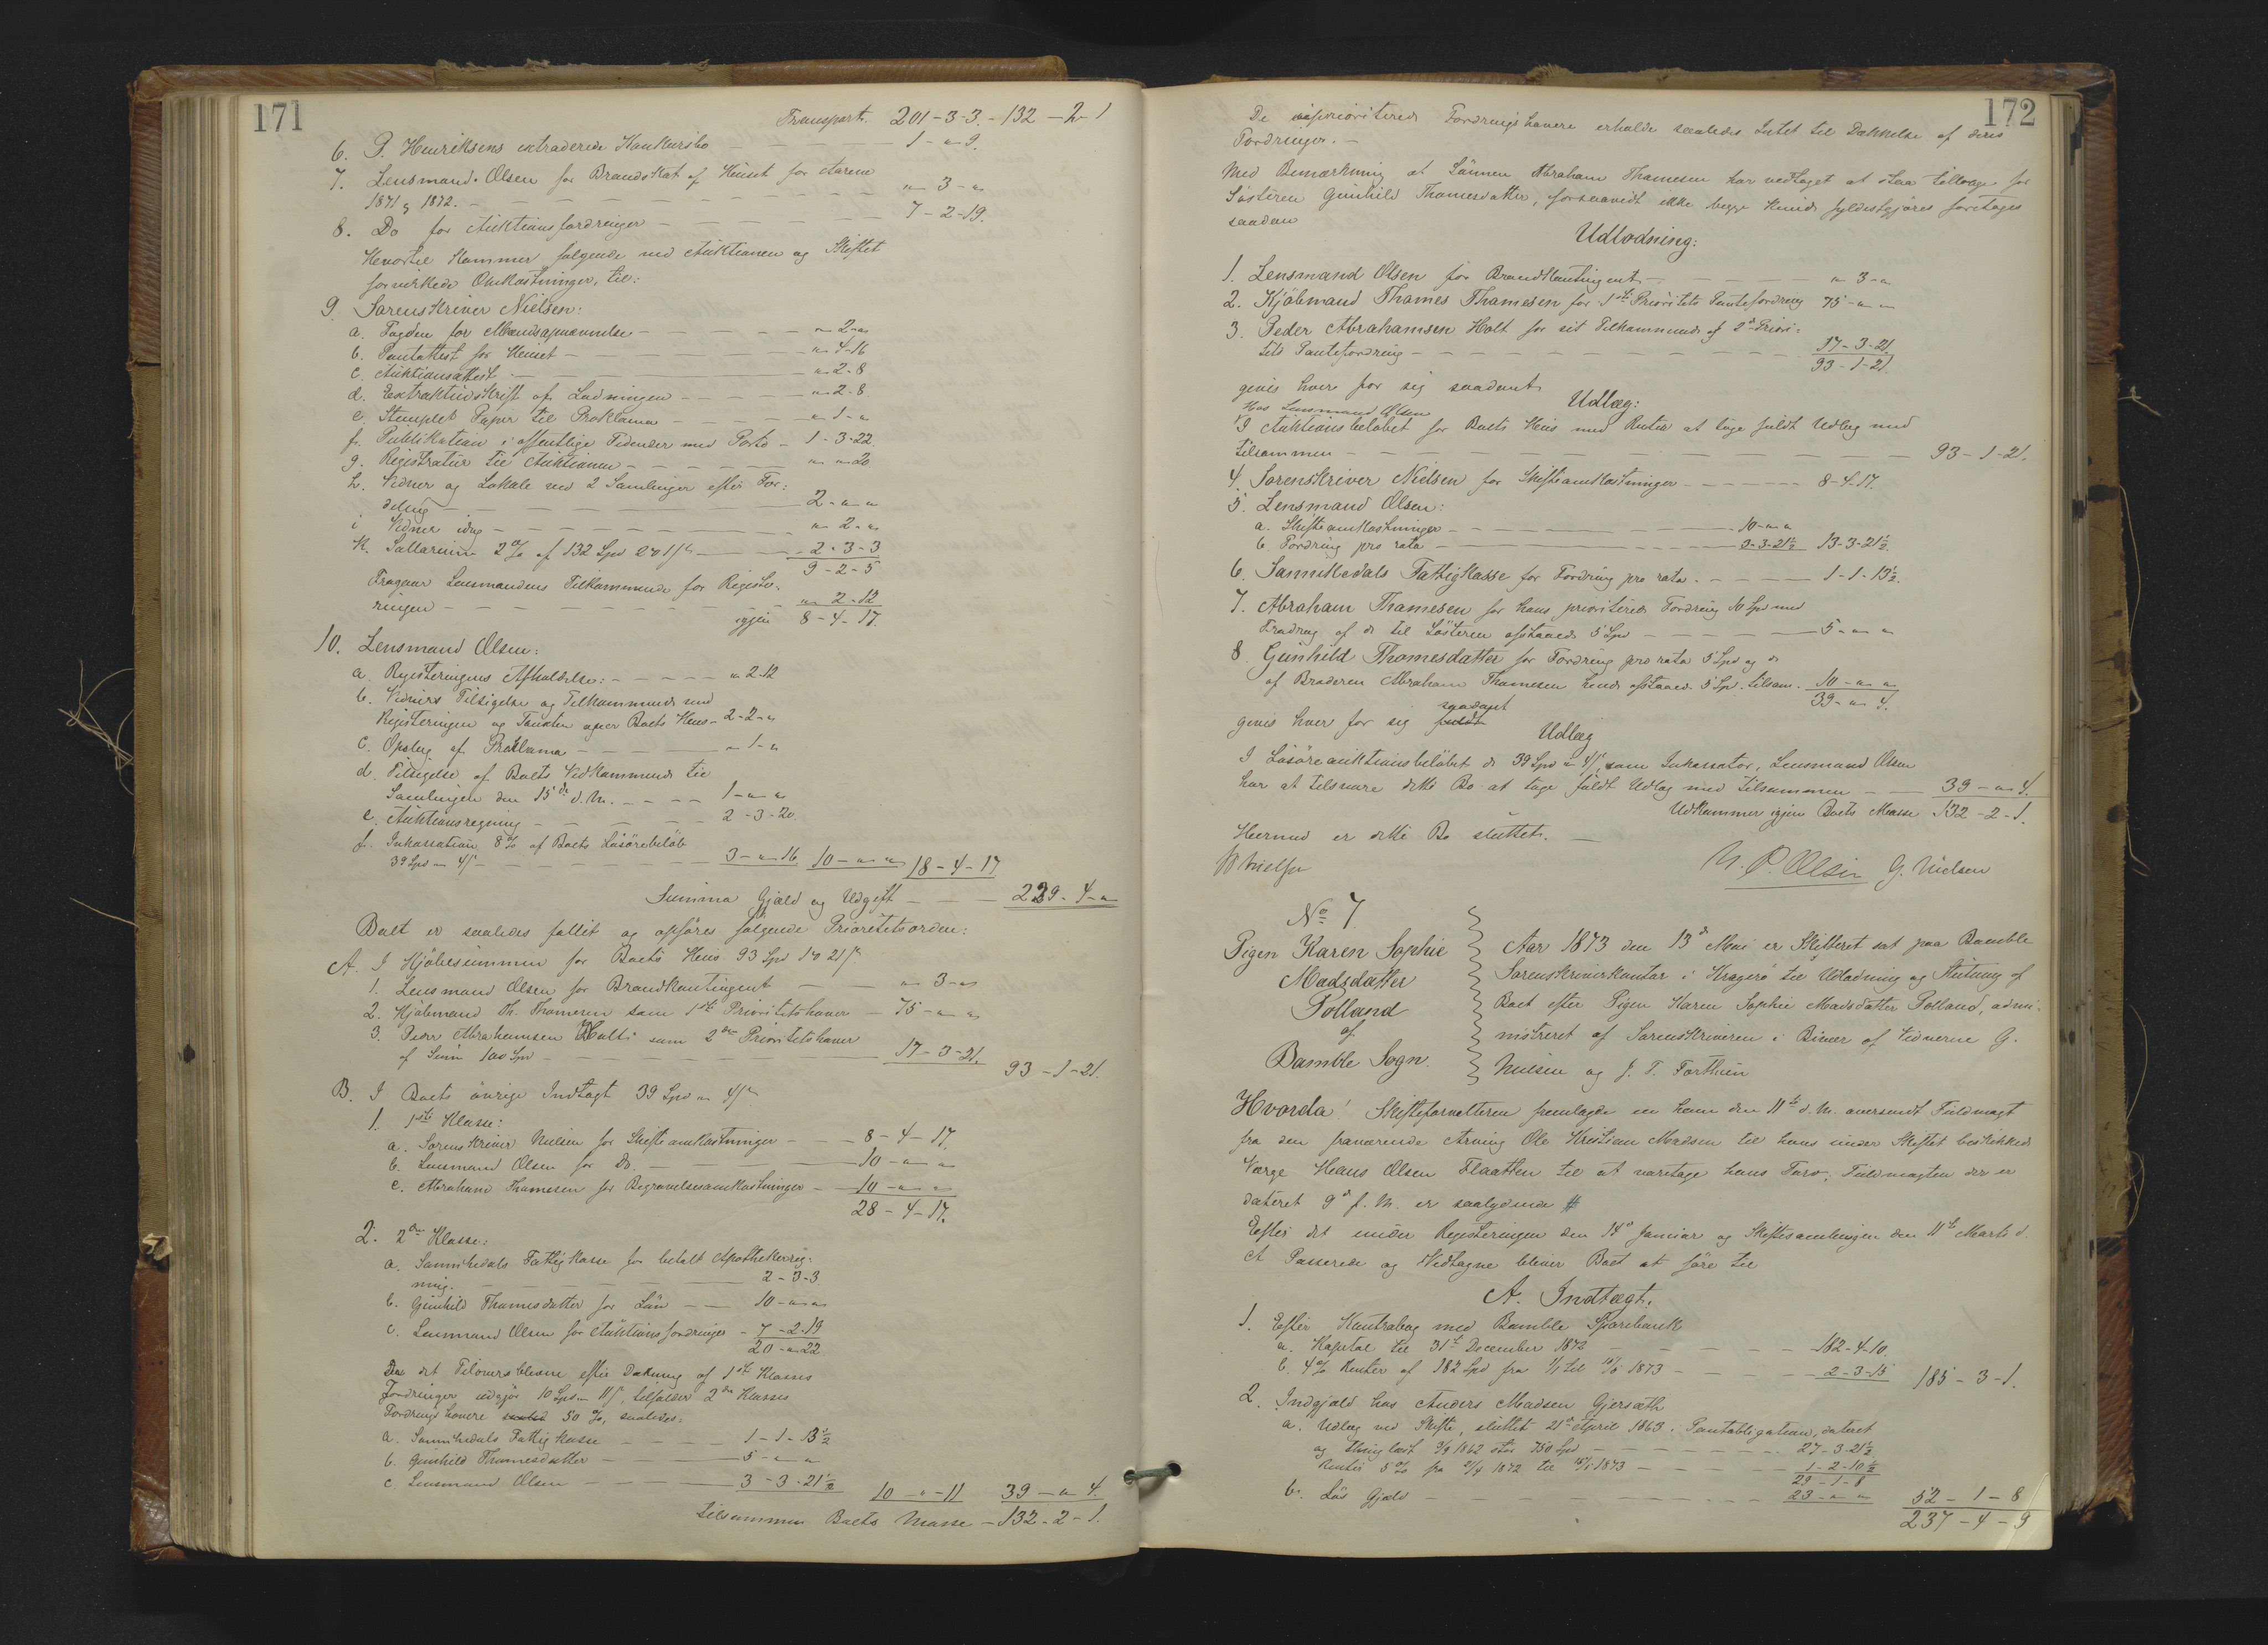 171
Transport. 201-3-3. - 132-2-1
6. P. Henriksens extraderede Konkursbo - - - - 1-"-9.
7. Lensmand Olsen for Brandskat af Huset for Aarene
1871 & 1872. - - - - - - - " 3-"
8. Do for Auktionsfordringer - - - - 7-2-19.
Hvortil kommer følgende ved Auktionen og Skiftet
forvirkede Omkostninger, til:
9. Sorenskriver Nielsen:
a. Fogden for Mændsopnævnelse - - - - - "-2-"
b. Pantattest for Huset - - - - "-4-16
c. Auktionsattest - - - - "-2-8
d. Extraktudskrift af Ladningen - - - - "-2-8.
e. Stemplet Papir til Proklama - - - - "-1-"
f. Publikation i offentlige Tidender med Porto - 1-3-22.
g. Registratur til Auktionen - - - - "-"-20
h. Vidner og Lokale ved 2 Samlinger efter For:
deling - - - - 2-"-"
i Vidner idag - - - - "-2-"
k. Sallarium 2% af 132 Spd 2 ort 1 s - - 2-3-3
9-2-5
Fragaar Lensmandens Tilkommende for Registe-
ringen - - - - "-2-12
igjen 8-4-17.
10. Lensmand Olsen:
a. Registeringens Afholdelse: - - - - " 2-12
b. Vidners Tilsigelse og Tilkommende ved
Registeringen og Taxten over Boets Huus - 2-2-"
c. Opslag af Proklama - - - - "-1-"
d. Tilsigelse af Boets Vedkommende til
Samlingen den 15de d.M. - - - - 1-"-"
e. Auktionsregning - - - - 2-3-20.
f. Inkassation 8% af Boets Løsørebeløb
39 Spd " 4 s - - - - 3-"-16 10-"-" 18-4-17
Summa Gjæld og Udgift - - - 229-4-"
Boet er saaledes fallit og opføres følgende Prioritetsorden:
A. I Kjøbesummen for Boets Huus 93 Spd 1 ort 21 s.
1. Lensmand Olsen for Brandkontingent - - " 3-"
2. Kjøbmand Th. Thomesen som 1ste Prioritetshaver - 75-"-"
3. Peder Abrahamsen Holt som 2den Prioritetshaver
af Sum 100 Spd - - - - 17-3-21. 93-1-21.
B. I Boets øvrige Indtægt 39 Spd " 4 s
1. 1ste Klasse:
a. Sorenskriver Nielsen for Skifteomkostninger - - - 8-4-17.
b. Lensmand Olsen for Do. - - - - 10-"-"
c. Abraham Thomesen for Begravelsesomkostninger - 10-"-"
28-4-17.
2. 2den Klasse:
a. Sannikedals Fattigkasse for betalt Apothekerreg-
ning. - - - - 2-3-3
b. Gunhild Thomesdatter for Løn - - 10-"-"
c. Lensmand Olsen for Auktionsfordringer - 7-2-19
20-"-22
Da det Tiloversblevne efter Dækning af 1ste Klasses
Fordringer udgjør 10 Spd " 11 s, tilfalder 2den Klasses
Fordringshavere 50 %, saaledes:
a. Sannikedals Fattigkasse - - - - 1-1-13½
b. Gunhild Thomesdatter - - - - 5-"-"
c. Lensmand Olsen - - - - 3-3-21½ 10-"-11 39-"-4.
tilsammen Boets Masse - 132-2-1.
172
De uprioriterede Fordringshavere erholde saaledes Intet til Dækkelse af deres
Fordringer. -
Med Bemærkning at Sønnen Abraham Thomesen har vedtaget at staa tilbage for
Søsteren Gunhild Thomesdatter, forsaavidt ikke begge kunde fyldestgjøres foretages
saadan
Udlodning:
1. Lensmand Olsen for Brandkontingent - - - - " 3-"
2. Kjøbmand Thomes Thomesen for 1ste Prioritets Pantefordring 75-"-"
3. Peder Abrahamsen Holt for sit Tilkommende af 2den Priori-
tets Pantefordring - - - - 17-3-21.
93-1-21.
gives hver for sig saadant
Udlæg:
Hos Lensmand Olsen
I Auktionsbeløbet for Boets Huus med Renter at tage fuldt Udlæg med
tilsammen - - - - 93-1-21.
4. Sorenskriver Nielsen for Skifteomkostninger - - - - 8-4-17.
5. Lensmand Olsen:
a. Skifteomkostninger - - - - 10-"-"
b. Fordring pro rata - - - - 3-3-21½ 13-3-21½.
6. Sannikedals Fattigkasse for Fordring pro rata. - - - - 1-1-13½.
7. Abraham Thomesen for hans prioriterede Fordring 10 Spd med
Fradrag af de til Søsteren afstaaede 5 Spd - - - - 5-"-"
8. Gunhild Thomesdatter for Fordring pro rata 5 Spd og de
af Broderen Abraham Thomesen hende afstaaede 5 Spd. tilsam. - 10-"-"
39-"-4.
gives hver for sig saadant
Udlæg
I Løsøreauktionsbeløbet de 39 Spd " 4 s, som Inkassator, Lensmand Olsen
har at tilsvare dette Bo at tage fuldt Udlæg med tilsammen - - 39-"-4.
Udkommer igjen Boets Masse - 132-2-1.
Hermed er dette Bo sluttet. -
N. P. Olsen G. Nielsen
No 7
Pigen Karen Sophie
Madsdatter
Tolland
af
Bamble Sogn.
Aar 1873 den 13de Mai er Skifteret sat paa Bamble
Sorenskriverkontor i Kragerø til Udlodning og Slutning af
Boet efter Pigen Karen Sophie Madsdatter Tolland, admi-
nistreret af Sorenskriveren i Bivær af Vidnerne G.
Nielsen og J. T. Forthun
Hvorda! Skifteforvalteren fremlagde en ham den 11te d.M. oversendt Fuldmagt
fra den fraværende Arving Ole Kristian Madsen til hans under Skiftet beskikkede
Værge Hans Olsen Flaatten til at varetage hans Tarv; Fuldmagten der er
dateret 9de f.M. er saalydende #
Efter det under Registeringen den 14de Januar og Skiftesamlingen den 11te Marts d.
A. Passerede og Vedtagne bliver Boet at føre til
A. Indtægt.
1. Efter Kontrabog med Bamble Sparebank
a. Kapital til 31te December 1872 - - - - 182-4-10.
b. 4% Renter af 182 Spd fra 1/1 til 10/5 1873 - - - - 2-3-15 185-3-1.
2. Indgjæld hos Anders Madsen Gjersæth
a. Udlæg ved Skifte, sluttet 21de April 1863 i Pantobligation, dateret
og thinglæst 9/9 1862 stor 750 Spd - - - - 27-3-21½
Renter 5% fra 21/4 1872 til 15/5 1873 - - - - 1-2-10½
29-1-8
b. Løs Gjæld - - - - 23-"-" 52-1-8
237-4-9